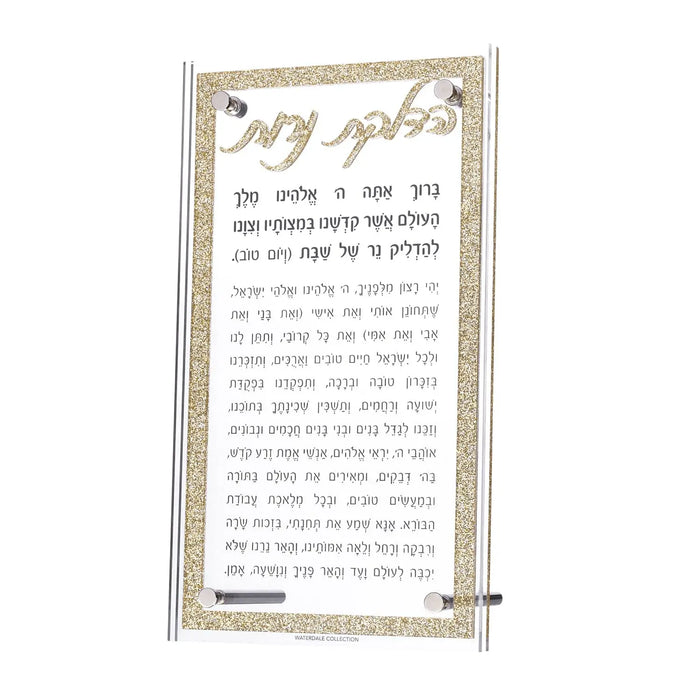 הדלקת נרות
בָּרוּךְ אַתָּה ה' אֱלֹהֵינוּ מֶלֶךְ
הָעוֹלָם אֲשֶׁר קִדְּשָׁנוּ בְּמִצְוֹתָיו וְצִוָּנוּ
לְהַדְלִיק נֵר שֶׁל שַׁבָּת (וְיוֹם טוֹב).
יְהִי רָצוֹן מִלְּפָנֶיךָ, ה' אֱלֹהֵינוּ וֵאלֹהֵי יִשְׂרָאֵל,
שֶׁתְּחוֹנֵן אוֹתִי וְאֶת אִישִׁי (וְאֶת בָּנַי וְאֶת
אָבִי וְאֶת אִמִּי) וְאֶת כָּל קְרוֹבַי, וְתִתֵּן לָנוּ
וּלְכָל יִשְׂרָאֵל חַיִּים טוֹבִים וַאֲרֻכִּים, וְתִזְכְּרֵנוּ
בְּזִכְרוֹן טוֹבָה וּבְרָכָה, וְתִפְקְדֵנוּ בִּפְקֻדַּת
יְשׁוּעָה וְרַחֲמִים, וְתַשְׁכִּין שְׁכִינָתֶךָ בְּתוֹכֵנוּ,
וְזַכֵּנוּ לְגַדֵּל בָּנִים וּבְנֵי בָנִים חֲכָמִים וּנְבוֹנִים,
אוֹהֲבֵי ה', יִרְאֵי אֱלֹהִים, אַנְשֵׁי אֱמֶת זֶרַע קֹדֶשׁ,
בַּה' דְּבֵקִים, וּמְאִירִים אֶת הָעוֹלָם בַּתּוֹרָה
וּבְמַעֲשִׂים טוֹבִים, וּבְכָל מְלֶאכֶת עֲבוֹדַת
הַבּוֹרֵא. אָנָּא שְׁמַע אֶת תְּחִנָּתִי, בִּזְכוּת שָׂרָה
וְרִבְקָה וְרָחֵל וְלֵאָה אִמּוֹתֵינוּ, וְהָאֵר נֵרֵנוּ שֶׁלֹּא
יִכְבֶּה לְעוֹלָם וָעֶד וְהָאֵר פָּנֶיךָ וְנִוָּשֵׁעָה, אָמֵן.
WATERDALE COLLECTION